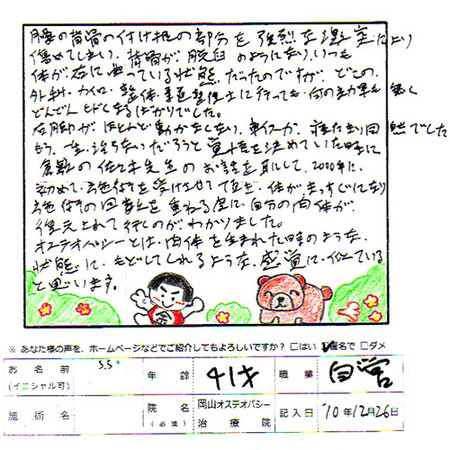 腰の背骨の付け根の部分を強烈な衝突により
傷めてしまい、背骨が脱臼のようになり、いつも
体が右に曲っている状態だったのですが、どこの
外科・カイロ・整体・柔道整復士に行っても、何の効果も無く
どんどんひどくなるばかりでした。
右腕がほとんど動かなくなり、車イスか、寝たきり同然でした
もう一生治らないだろうと覚悟を決めていた時に
倉敷の佐々木先生のお話を耳にして、2000年に
初めて施術を受けさせて頂き、体がまっすぐになり
施術の回数を重ねる度に、自分の肉体が
復元されて行くのがわかりました。
オステオパシーとは、肉体を生まれた時のような
状態に、もどしてくれるような感覚に似ている
と思います。
金
※ あなた様の声を、ホームページなどでご紹介してもよろしいですか? □はい 匿名で □ダメ
お名前 S.S 年齢 41才 職業 自営
(イニシャル可)
施術名 院名 岡山オステオパシー 記入日 '10年12月26日
(必須) 治療院